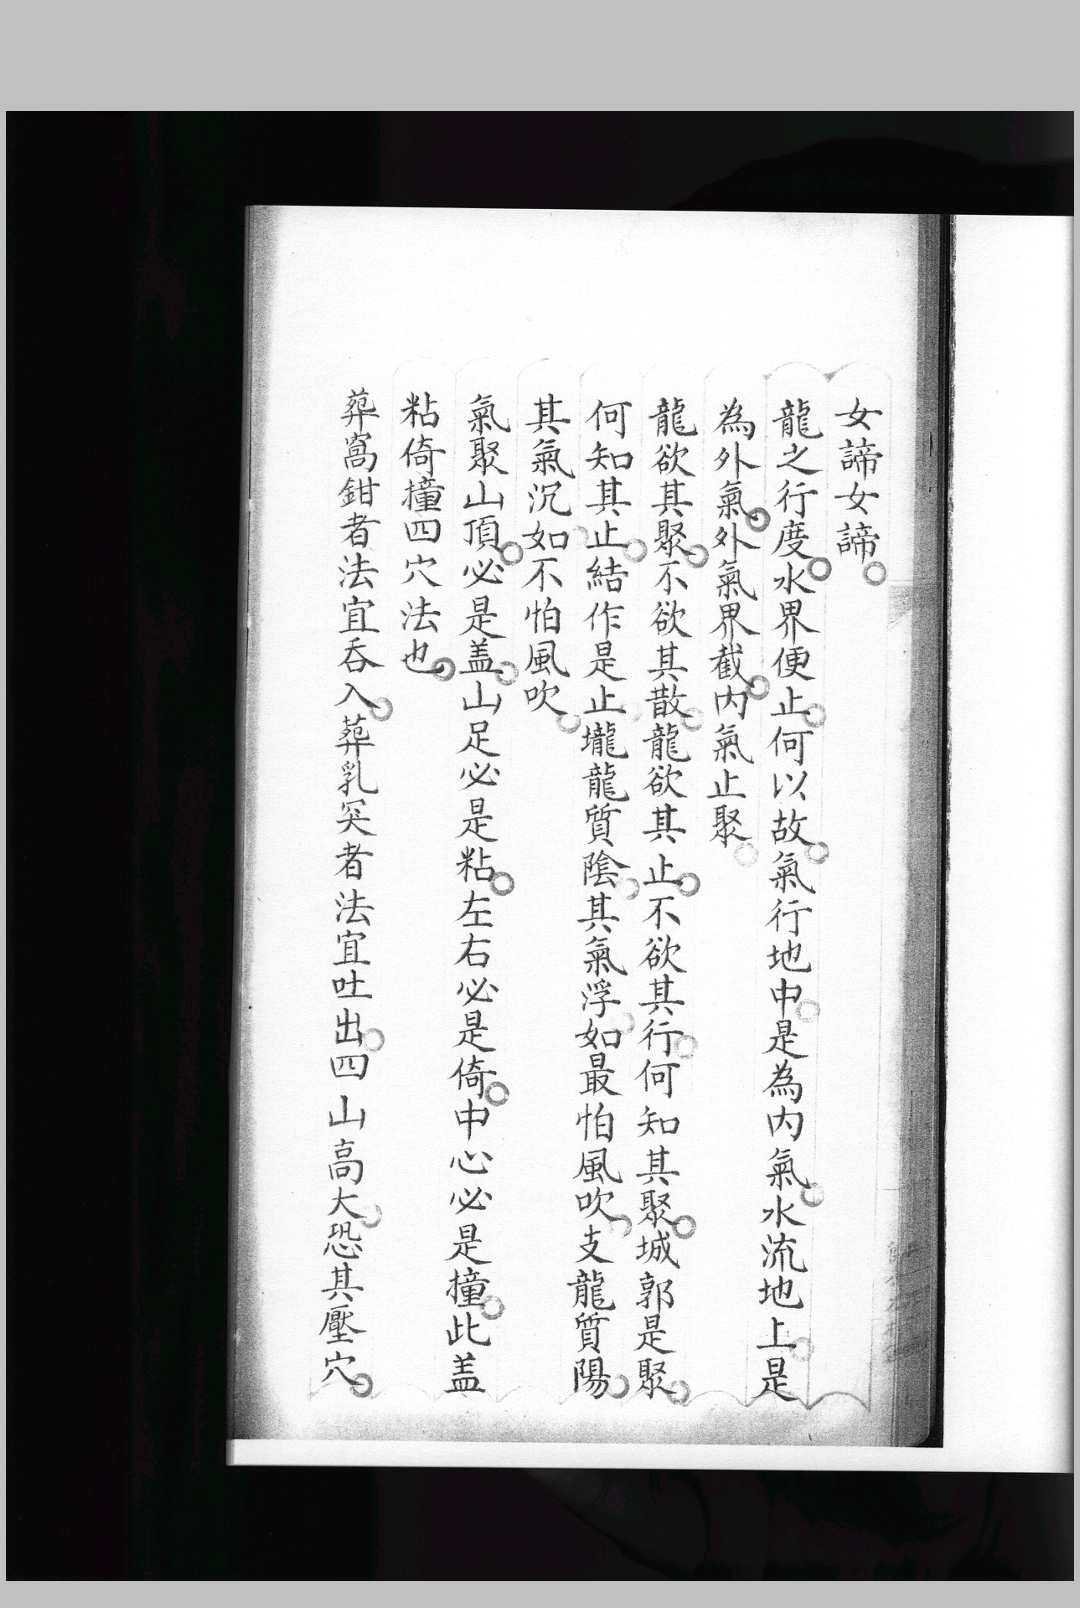 女諦女諦
龍之行度水界便止何以故氣行地中是為內氣水流地上是
為外氣外氣界截內氣止聚
龍欲其聚不欲其散龍欲其止不欲其行何知其聚城郭是聚
何知其止結作是止壠龍質陰其氣浮如最怕風吹支龍質陽
其氣沉如不怕風吹
氣聚山頂必是盖山足必是粘左右必是倚中心必是撞此盖
粘倚撞四穴法也
葬窩鉗者法宜吞入葬乳突者法宜吐出四山高大恐其壓穴